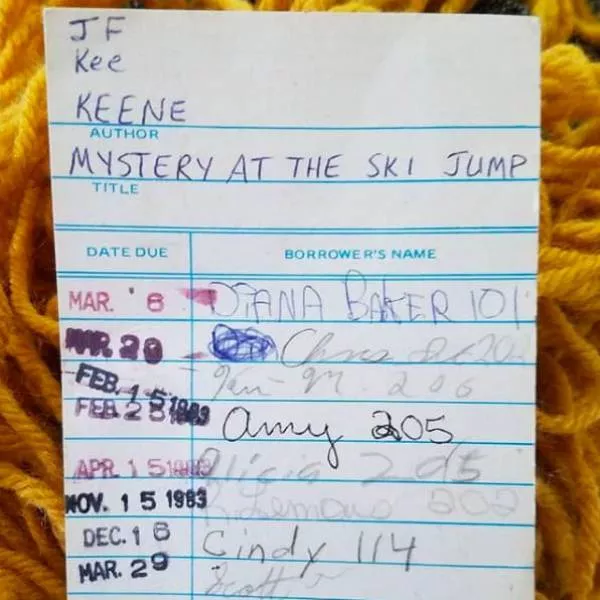 JF
Kee
KEENE
AUTHOR
MYSTERY AT THE SKI JUMP
TITLE
DATE DUE BORROWER'S NAME
MAR. 6 DIANA BAKER 101
MAR. 20 Chris
FEB. 15 1983 206
FEB. 28 1983 Amy 205
APR. 15 1983 Alicia 205
NOV. 15 1983 202
DEC. 16 Cindy 114
MAR. 29 Scott